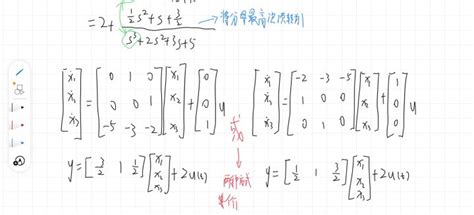 = 2 + (½s² + s + 3/2) / (s³ + 2s² + 3s + 5) → 将分母最高次项转为1
[ẋ₁; ẋ₂; ẋ₃] = [0 1 0; 0 0 1; -5 -3 -2] [x₁; x₂; x₃] + [0; 0; 1] u 或 [ẋ₁; ẋ₂; ẋ₃] = [-2 -3 -5; 1 0 0; 0 1 0] [x₁; x₂; x₃] + [1; 0; 0] u
y = [3/2 1 ½] [x₁; x₂; x₃] + 2u(t) 两种式等价 y = [½ 1 3/2] [x₁; x₂; x₃] + 2u(t)